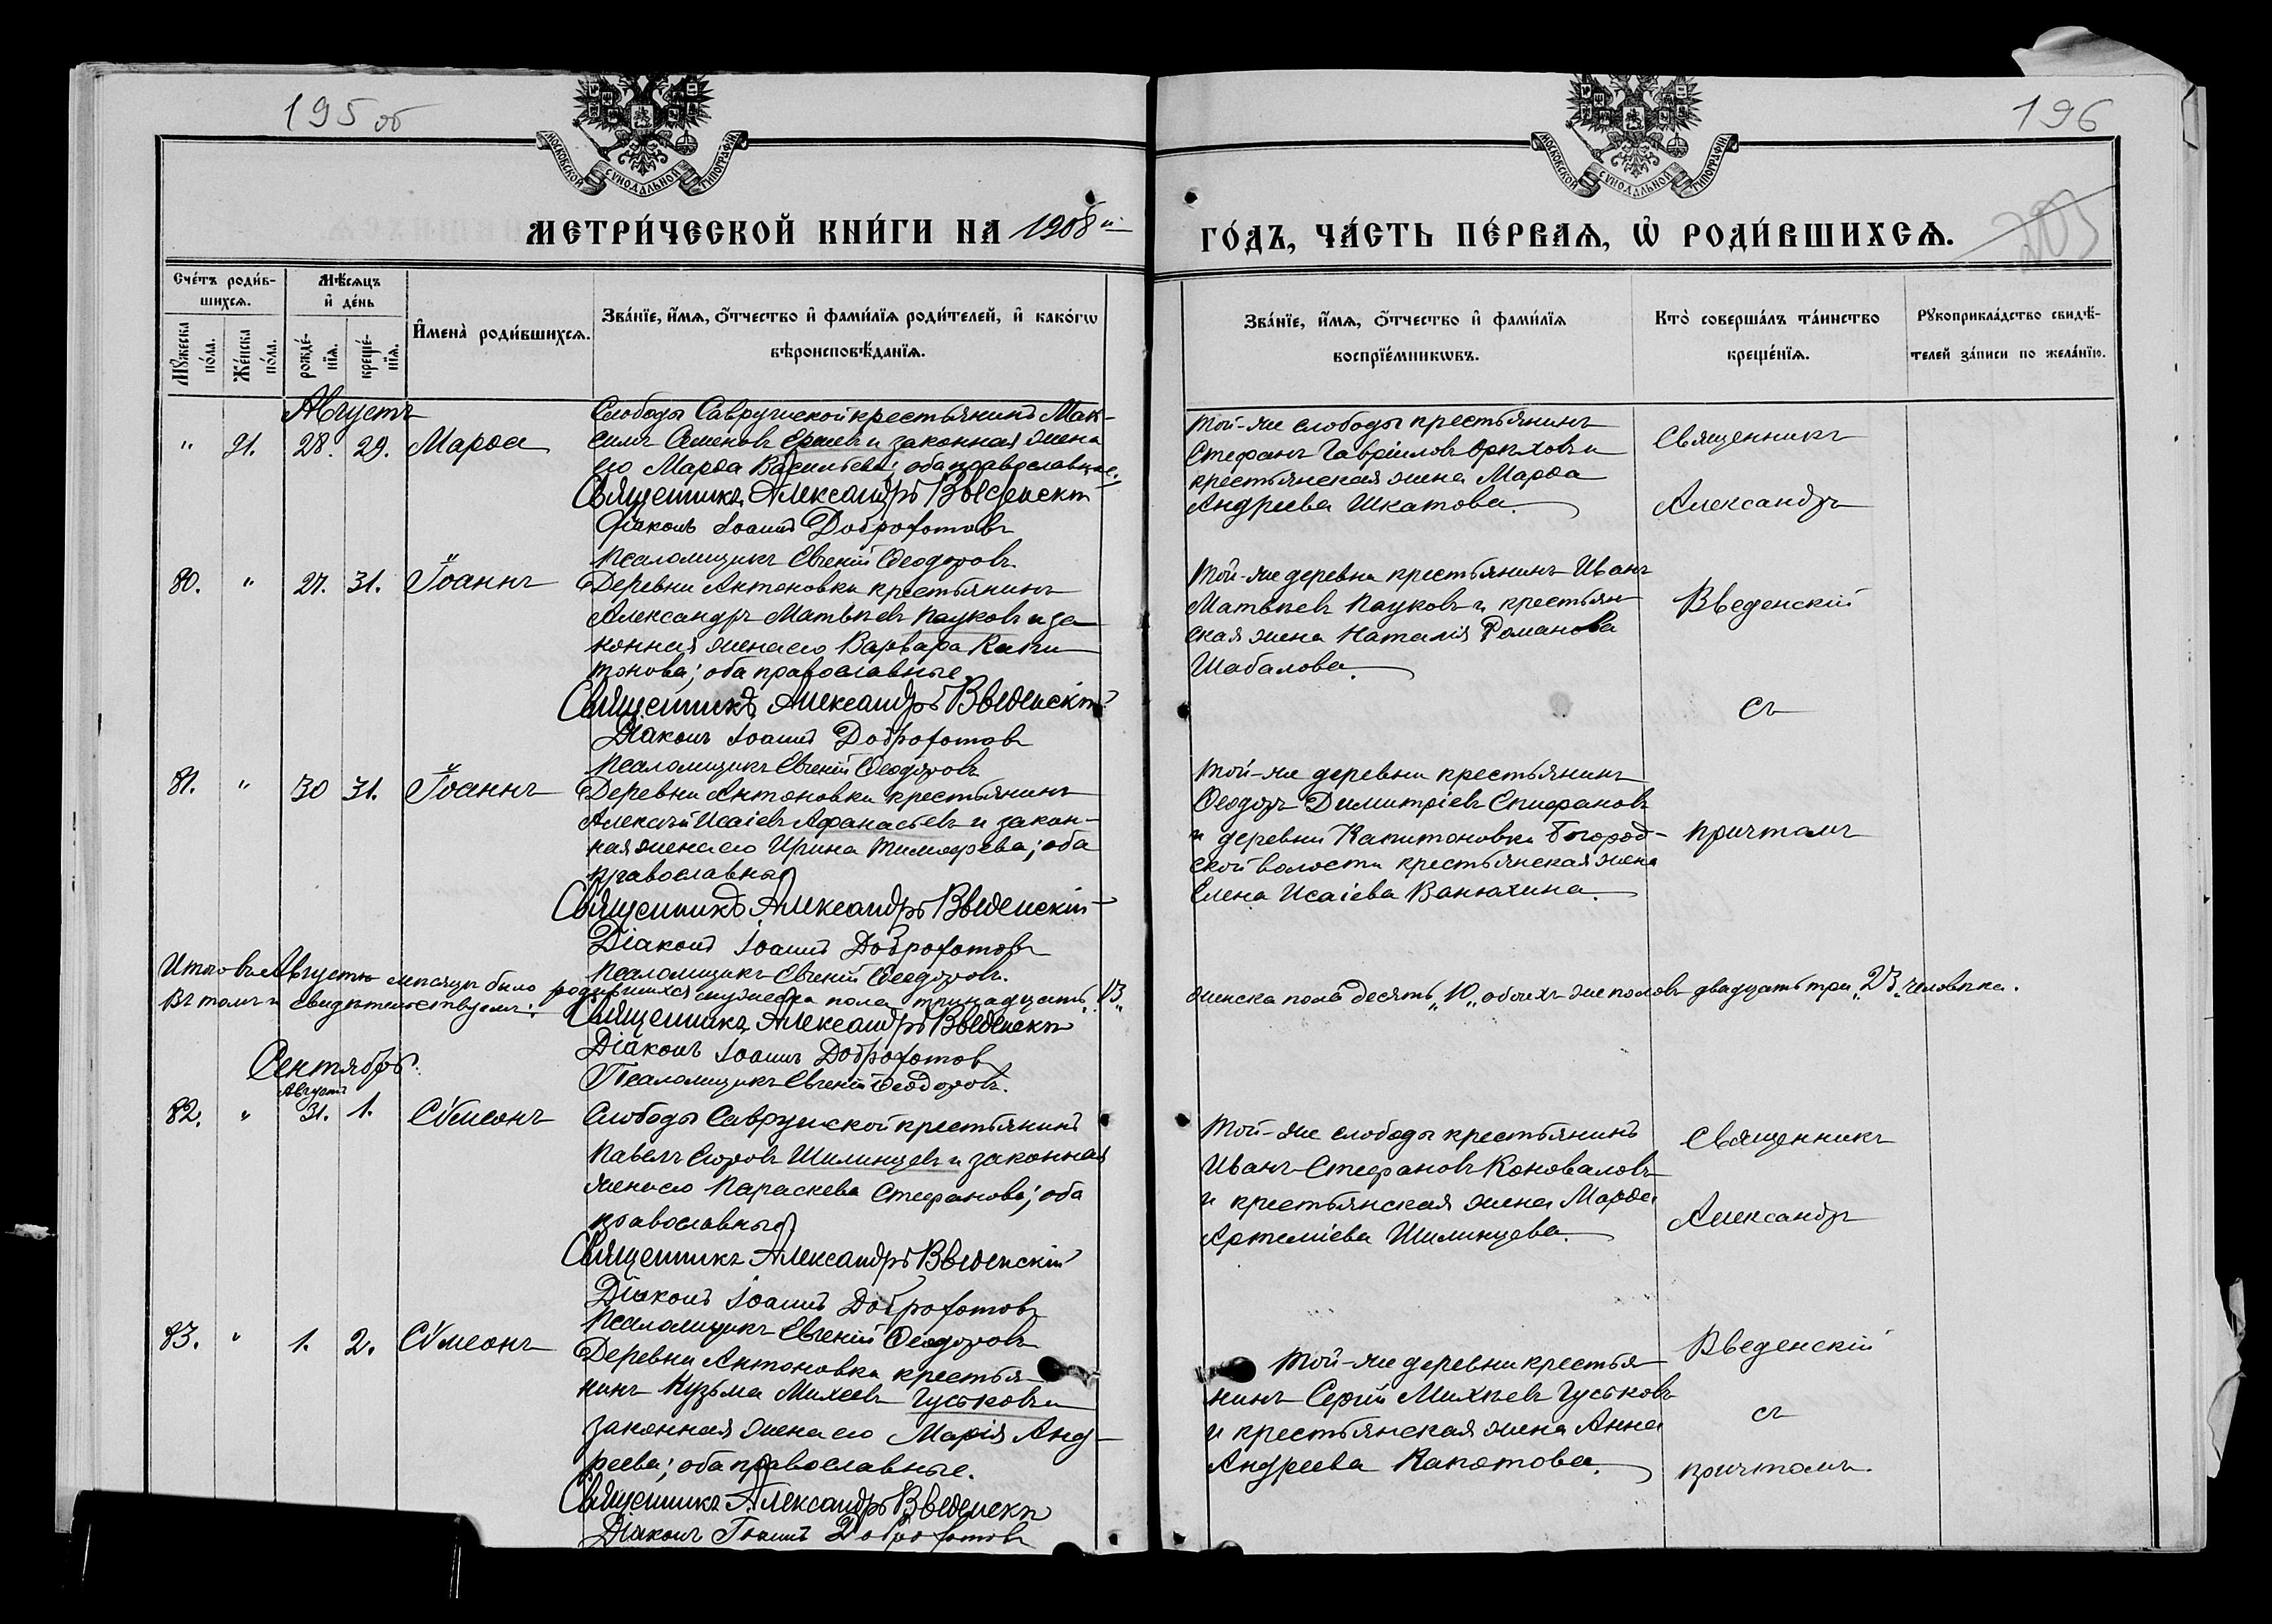 195 об
196
МОСКОВСКОЙ СУНОДАЛЬНОЙ ТИПОГРАФІИ
МОСКОВСКОЙ СУНОДАЛЬНОЙ ТИПОГРАФІИ
МЕТРИ́ЧЕСКОЙ КНИ́ГИ НА 1908 й
ГО́ДЪ, ЧА́СТЬ ПЕ́РВАѦ, Ѡ҆ РОДИ́ВШИХСѦ.
205
Сче́тъ роди́в-
шихсѧ.
Мѣ́сѧцъ
и҆ де́нь
Мꙋжеска по́ла.
Же́нска по́ла.
рожде́-
нїѧ.
креще́-
нїѧ.
И҆мена̀ роди́вшихсѧ.
Зва́нїе, и҆́мѧ, ѻ҆́тчество и҆ фами́лїѧ роди́телей, и҆ како́гѡ
вѣроисповѣ́данїѧ.
Зва́нїе, и҆́мѧ, ѻ҆́тчество и҆ фами́лїѧ
воспрїе́мникѡвъ.
Кто̀ соверша́лъ та́инство
креще́нїѧ.
Рꙋкоприкла́дство свидѣ́-
телей за́писи по жела́нїю.
Августъ
" 91. 28. 29. Марѳа
Слободы Саврушской крестьянинъ Мак-
симъ Семеновъ Ершевъ и законная жена
его Марѳа Васильева; оба православные.
Священникъ Александръ Введенскій
Діаконъ Іоаннъ Доброхотовъ
Псаломщикъ Евгеній Ѳеодоровъ.
Той-же слободы крестьянинъ
Стефанъ Гавріиловъ Орѣховъ и
крестьянская жена Марѳа
Андреева Шкатова.
Священникъ
Александръ
80. " 27. 31. Іоаннъ
Деревни Антоновки крестьянинъ
Александръ Матвѣевъ Пауковъ и за-
конная жена его Варвара Капи-
тонова; оба православные.
Священникъ Александръ Введенскій
Діаконъ Іоаннъ Доброхотовъ
Псаломщикъ Евгеній Ѳеодоровъ
Той-же деревни крестьянинъ Иванъ
Матвѣевъ Пауковъ и крестьян-
ская жена Наталія Романова
Шабалова.
Введенскій
съ
81. " 30 31. Іоаннъ
Деревни Антоновки крестьянинъ
Алексѣй Исаіевъ Аѳанасьевъ и закон-
ная жена его Ирина Тимоѳеева; оба
православные
Священникъ Александръ Введенскій
Діаконъ Іоаннъ Доброхотовъ
Псаломщикъ Евгеній Ѳеодоровъ.
Той-же деревни крестьянинъ
Ѳеодоръ Димитріевъ Епифановъ
и деревни Капитоновки Богород-
ской волости крестьянская жена
Елена Исаіева Ванюхина.
причтомъ
Итого въ Августѣ мѣсяцѣ было родившихся мужеска пола тринадцать „13„
женска пола десять „10„ обоихъ же половъ двадцать три „23„ человѣка.
Въ томъ и свидѣтельствуемъ:
Священникъ Александръ Введенскій
Діаконъ Іоаннъ Доброхотовъ
Псаломщикъ Евгеній Ѳеодоровъ.
Сентябрь.
Августа
82. " 31. 1. Сѵмеонъ
Слободы Саврушской крестьянинъ
Павелъ Егоровъ Шилинцевъ и законная
жена его Параскева Стефанова; оба
православные.
Священникъ Александръ Введенскій
Діаконъ Іоаннъ Доброхотовъ
Псаломщикъ Евгеній Ѳеодоровъ
Той-же слободы крестьянинъ
Иванъ Стефановъ Коноваловъ
и крестьянская жена Марѳа
Артеміева Шилинцева.
Священникъ
Александръ
83. " 1. 2. Сѵмеонъ
Деревни Антоновки крестья-
нинъ Кузьма Михеевъ Гуськовъ и
законная жена его Марія Анд-
реева; оба православные.
Священникъ Александръ Введенскій
Діаконъ Іоаннъ Доброхотовъ
Той-же деревни крестья-
нинъ Сергій Михѣевъ Гуськовъ
и крестьянская жена Анна
Андреева Капотова.
Введенскій
съ
причтомъ.